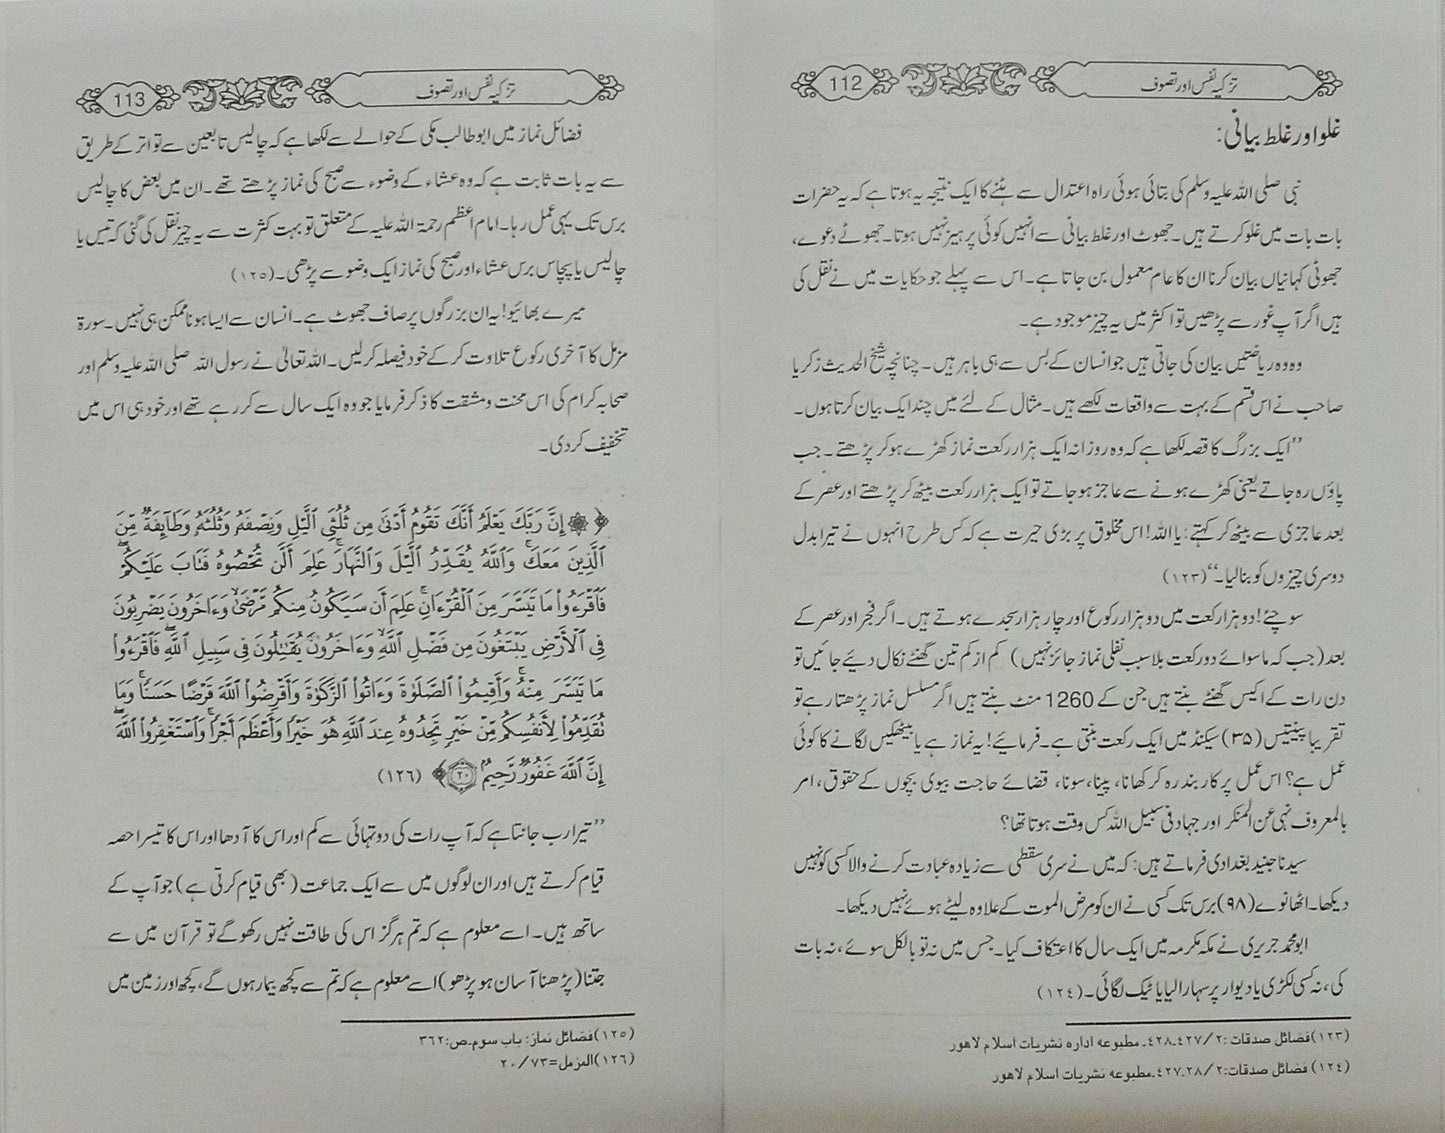 112
تزکیہ نفس اور تصوف
غلو اور غلط بیانی:
نبی صلی اللہ علیہ وسلم کی بتائی ہوئی راہ اعتدال سے ہٹنے کا ایک نتیجہ یہ ہوتا ہے کہ یہ حضرات
بات بات میں غلو کرتے ہیں۔ جھوٹ اور غلط بیانی سے انہیں کوئی پرہیز نہیں ہوتا۔ جھوٹے دعوے،
جھوٹی کہانیاں بیان کرنا ان کا عام معمول بن جاتا ہے۔ اس سے پہلے جو حکایات میں نے نقل کی
ہیں اگر آپ غور سے پڑھیں تو اکثر میں یہ چیز موجود ہے۔
وہ وہ ریاضتیں بیان کی جاتی ہیں جو انسان کے بس سے ہی باہر ہیں۔ چنانچہ شیخ الحدیث زکریا
صاحب نے اس قسم کے بہت سے واقعات لکھے ہیں۔ مثال کے لئے میں چند ایک بیان کرتا ہوں۔
’’ایک بزرگ کا قصہ لکھا ہے کہ وہ روزانہ ایک ہزار رکعت نماز کھڑے ہو کر پڑھتے۔ جب
پاؤں رہ جاتے یعنی کھڑے ہونے سے عاجز ہو جاتے تو ایک ہزار رکعت بیٹھ کر پڑھتے اور عصر کے
بعد عاجزی سے بیٹھ کر کہتے: یا اللہ! اس مخلوق پر بڑی حیرت ہے کہ کس طرح انہوں نے تیرا بدل
دوسری چیزوں کو بنا لیا۔‘‘ (۱۲۳)
سوچئے! دو ہزار رکعت میں دو ہزار رکوع اور چار ہزار سجدے ہوتے ہیں۔ اگر فجر اور عصر کے
بعد (جب کہ ماسوائے دو رکعت بلا سبب نفلی نماز جائز نہیں) کم از کم تین گھنٹے نکال دیئے جائیں تو
دن رات کے اکیس گھنٹے بنتے ہیں جن کے 1260 منٹ بنتے ہیں اگر مسلسل نماز پڑھتا رہے تو
تقریبا پینتیس (۳۵) سیکنڈ میں ایک رکعت بنتی ہے۔ فرمائیے! یہ نماز ہے یا بیٹھکیں لگانے کا کوئی
عمل ہے؟ اس عمل پر کاربند رہ کر کھانا، پینا، سونا، قضائے حاجت بیوی بچوں کے حقوق، امر
بالمعروف نہی عن المنکر اور جہاد فی سبیل اللہ کس وقت ہوتا تھا؟
سیدنا جنید بغدادی فرماتے ہیں: کہ میں نے سری سقطی سے زیادہ عبادت کرنے والا کسی کو نہیں
دیکھا۔ اٹھانوے (۹۸) برس تک کسی نے ان کو مرض الموت کے علاوہ لیٹے ہوئے نہیں دیکھا۔
ابو محمد جریری نے مکہ مکرمہ میں ایک سال کا اعتکاف کیا۔ جس میں نہ تو بالکل سوئے، نہ بات
کی، نہ کسی لکڑی یا دیوار پر سہارا لیا یا ٹیک لگائی۔ (۱۲٤)
(۱۲۳) فضائل صدقات: ۲/٤۲۷۔٤۲۸۔ مطبوعہ ادارہ نشریات اسلام لاہور
(۱۲٤) فضائل صدقات: ۲/۲۸۔٤۲۷۔ مطبوعہ نشریات اسلام لاہور
113
تزکیہ نفس اور تصوف
فضائل نماز میں ابو طالب مکی کے حوالے سے لکھا ہے کہ چالیس تابعین سے تواتر کے طریق
سے یہ بات ثابت ہے کہ وہ عشاء کے وضوء سے صبح کی نماز پڑھتے تھے۔ ان میں بعض کا چالیس
برس تک یہی عمل رہا۔ امام اعظم رحمۃ اللہ علیہ کے متعلق تو بہت کثرت سے یہ چیز نقل کی گئی کہ تیس یا
چالیس یا پچاس برس عشاء اور صبح کی نماز ایک وضو سے پڑھی۔ (۱۲۵)
میرے بھائیو! یہ ان بزرگوں پر صاف جھوٹ ہے۔ انسان سے ایسا ہونا ممکن ہی نہیں۔ سورۃ
مزمل کا آخری رکوع تلاوت کر کے خود فیصلہ کر لیں۔ اللہ تعالیٰ نے رسول اللہ صلی اللہ علیہ وسلم اور
صحابہ کرام کی اس محنت و مشقت کا ذکر فرمایا جو وہ ایک سال سے کر رہے تھے اور خود ہی اس میں
تخفیف کر دی۔
﴿۞ إِنَّ رَبَّكَ يَعْلَمُ أَنَّكَ تَقُومُ أَدْنَىٰ مِن ثُلُثَيِ ٱلَّيْلِ وَنِصْفَهُۥ وَثُلُثَهُۥ وَطَآئِفَةٌ مِّنَ
ٱلَّذِينَ مَعَكَ ۚ وَٱللَّهُ يُقَدِّرُ ٱلَّيْلَ وَٱلنَّهَارَ ۚ عَلِمَ أَن لَّن تُحْصُوهُ فَتَابَ عَلَيْكُمْ ۖ
فَٱقْرَءُوا۟ مَا تَيَسَّرَ مِنَ ٱلْقُرْءَانِ ۚ عَلِمَ أَن سَيَكُونُ مِنكُم مَّرْضَىٰ ۙ وَءَاخَرُونَ يَضْرِبُونَ
فِى ٱلْأَرْضِ يَبْتَغُونَ مِن فَضْلِ ٱللَّهِ ۙ وَءَاخَرُونَ يُقَـٰتِلُونَ فِى سَبِيلِ ٱللَّهِ ۖ فَٱقْرَءُوا۟
مَا تَيَسَّرَ مِنْهُ ۚ وَأَقِيمُوا۟ ٱلصَّلَوٰةَ وَءَاتُوا۟ ٱلزَّكَوٰةَ وَأَقْرِضُوا۟ ٱللَّهَ قَرْضًا حَسَنًا ۚ وَمَا
تُقَدِّمُوا۟ لِأَنفُسِكُم مِّنْ خَيْرٍ تَجِدُوهُ عِندَ ٱللَّهِ هُوَ خَيْرًا وَأَعْظَمَ أَجْرًا ۚ وَٱسْتَغْفِرُوا۟ ٱللَّهَ ۖ
إِنَّ ٱللَّهَ غَفُورٌ رَّحِيمٌۢ ۝٢٠﴾ (۱۲٦)
’’تیرا رب جانتا ہے کہ آپ رات کی دو تہائی سے کم اور اس کا آدھا اور اس کا تیسرا حصہ
قیام کرتے ہیں اور ان لوگوں میں سے ایک جماعت (بھی قیام کرتی ہے) جو آپ کے
ساتھ ہیں۔ اسے معلوم ہے کہ تم ہرگز اس کی طاقت نہیں رکھو گے تو قرآن میں سے
جتنا (پڑھنا آسان ہو پڑھو) اسے معلوم ہے کہ تم سے کچھ بیمار ہوں گے، کچھ اور زمین میں
(۱۲۵) فضائل نماز: باب سوم۔ص: ۳٦۲
(۱۲٦) المزمل=۷۳/۲۰